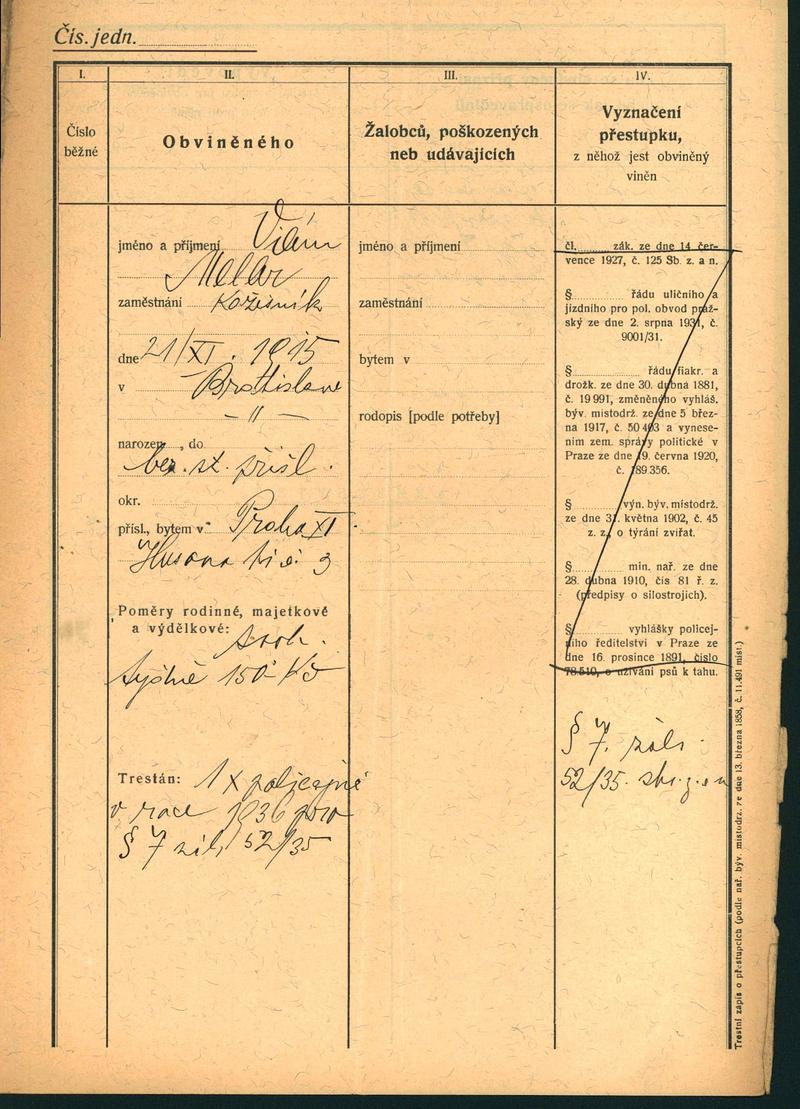 Čís. jedn.
I.
II.
III.
IV.
Číslo
běžné
Obviněného
Žalobců, poškozených
neb udávajících
Vyznačení
přestupku,
z něhož jest obviněný
viněn
jméno a příjmení Vilém
Meller
zaměstnání kožešník
dne 21/XI. 1915
v Bratislavě
— " —
narozen , do
bez. st. přísl.
okr.
přísl., bytem v Praha XI
Husova tř. č. 3
Poměry rodinné, majetkové
a výdělkové: svob.
týdně 150 Kč
Trestán: 1 x policejně
v roce 1936 pro
§ 7 zák. 52/35
jméno a příjmení
zaměstnání
bytem v
rodopis [podle potřeby]
čl. zák. ze dne 14 čer-
vence 1927, č. 125 Sb. z. a n.
§ řádu uličního a
jízdního pro pol. obvod praž-
ský ze dne 2. srpna 1931, č.
9001/31.
§ řádu fiakr. a
drožk. ze dne 30. dubna 1881,
č. 19 991, změněného vyhláš.
býv. místodrž. ze dne 5 břez-
na 1917, č. 50 493 a vynese-
ním zem. správy politické v
Praze ze dne 19. června 1920,
č. 189 356.
§ výn. býv. místodrž.
ze dne 31. května 1902, č. 45
z. z., o týrání zvířat.
§ min. nař. ze dne
28. dubna 1910, čís 81 ř. z.
(předpisy o silostrojích).
§ vyhlášky policej-
ního ředitelství v Praze ze
dne 16. prosince 1891, číslo
78.510, o užívání psů k tahu.
§ 7. zák.
52/35. sb. z. a n
Trestní zápis o přestupcích (podle nař. býv. místodrž. ze dne 13. března 1858, č. 11.491 míst.)